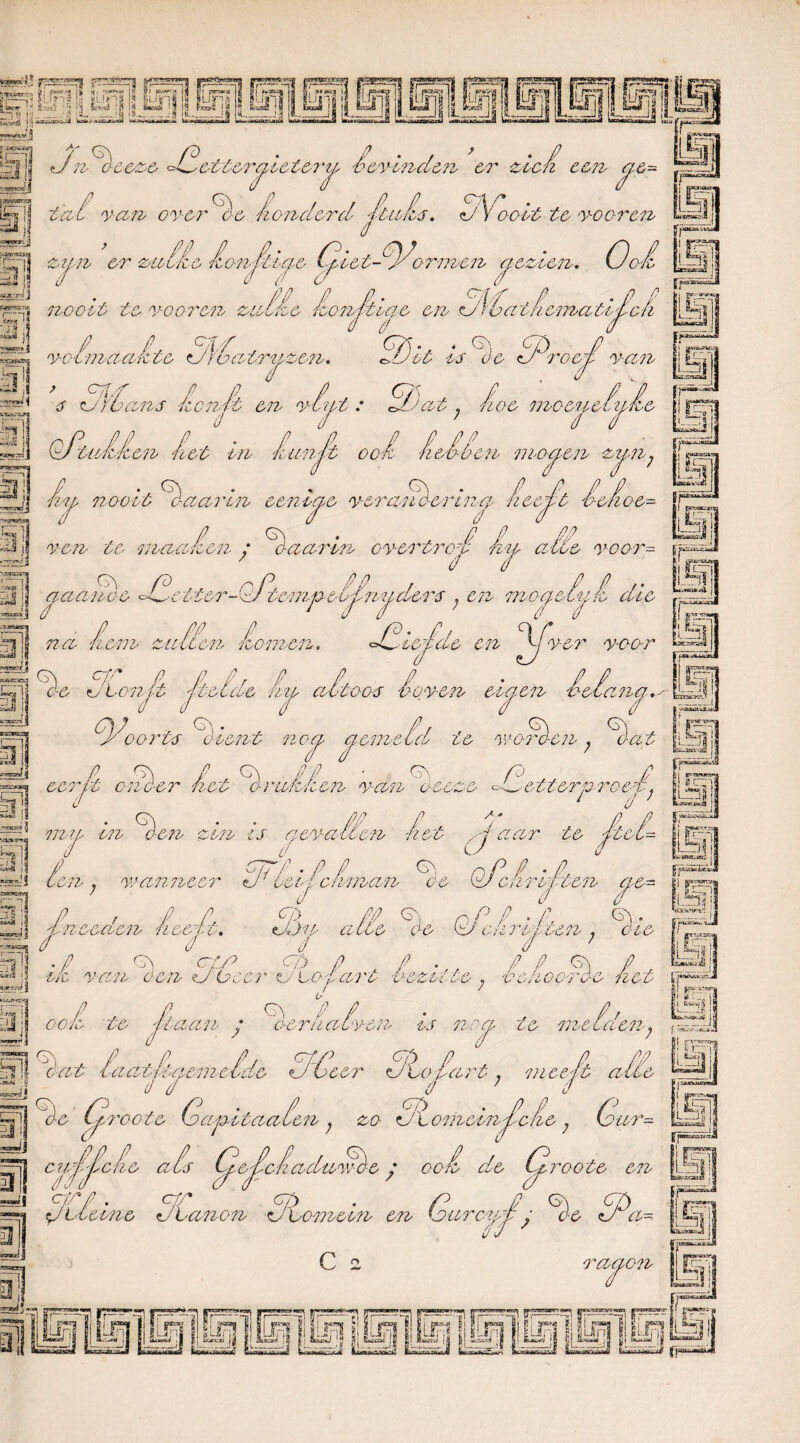 In deeze Lettergieterij bevinden 'er zich een ge=
tal van over de honderd ſtuks. Nooit te vooren
zijn 'er zulke konſtige Giet-Vormen gezien. Ook
nooit te vooren zulke konſtige en Mathematiſch
volmaakte Matrijzen. Dit is de Proef van
's Mans konſt en vlijt: Dat, hoe moeijelijke
Stukken het in kunſt ook hebben mogen zijn,
hij nooit daarin eenige verandering heeft behoe=
ven te maaken; daarin overtrof hij alle voor=
gaande Letter-Stempelſnijders, en mogelijk die
na hem zullen komen. Liefde en Yver voor
de Konſt ſtelde hij altoos boven eigen belang.
Voorts dient nog gemeld te worden, dat
eerſt onder het drukken van deeze Letterproef,
mij in den zin is gevallen het Jaar te ſtel=
len, wanneer Fleiſchman de Schriften ge=
ſneeden heeft. Bij alle de Schriften, die
ik van den Heer Roſart bezitte, behoorde het
ook te ſtaan; derhalven is nog te melden,
dat laatſtgemelde Heer Roſart, meeſt alle
de Groote Capitaalen, zo Romeinſche, Cur=
cijſſche als Geſchaduwde; ook de Groote en
Kleine Kanon Romein en Curcijf; de Pa=
C 2 ragon